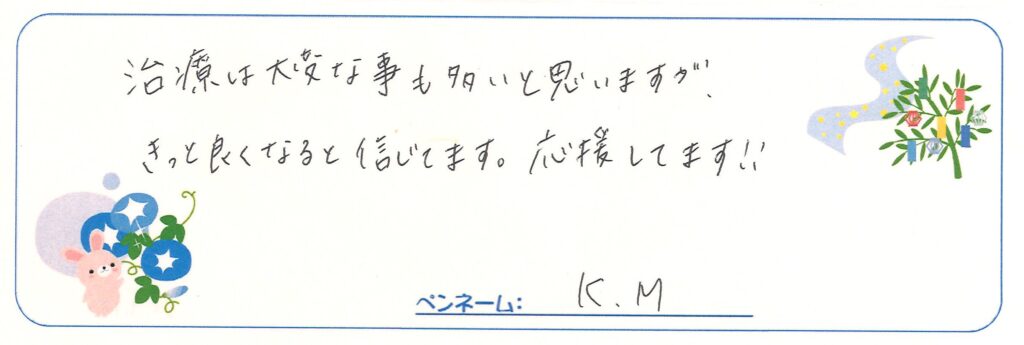 治療は大変な事も多いと思いますが、
きっと良くなると信じてます。応援してます!!
ペンネーム: K.M